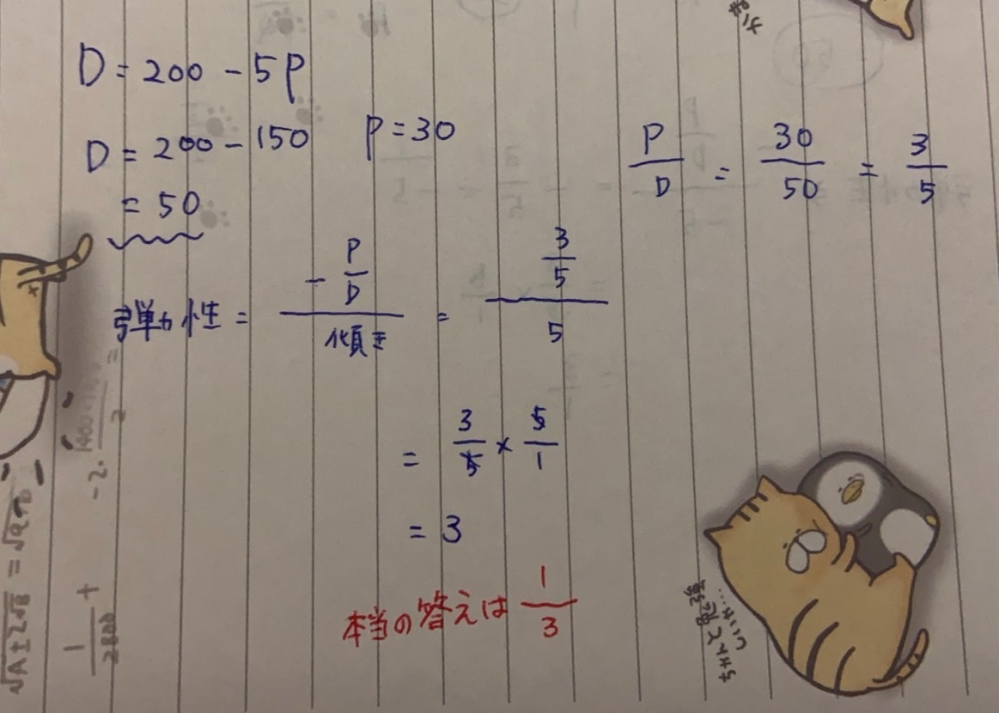 D = 200 - 5P
D = 200 - 150 P = 30
= 50
P/D = 30/50 = 3/5
弾力性 = (- P/D)/傾き = (3/5)/5
= 3/5 × 5/1
= 3
本当の答えは 1/3